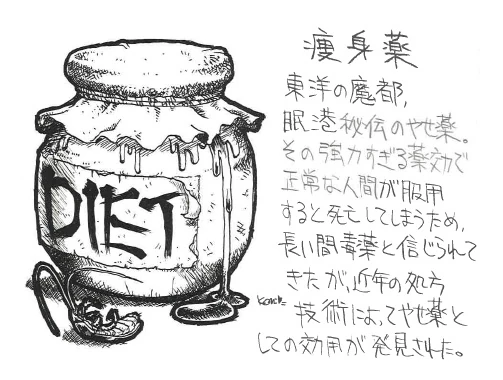 痩身薬
東洋の魔都,
眠港秘伝のやせ薬。
その強力すぎる薬効で
正常な人間が服用
すると死亡してしまうため,
長い間毒薬と信じられて
きたが,近年の処方
技術によってやせ薬と
しての効用が発見された。
DIET